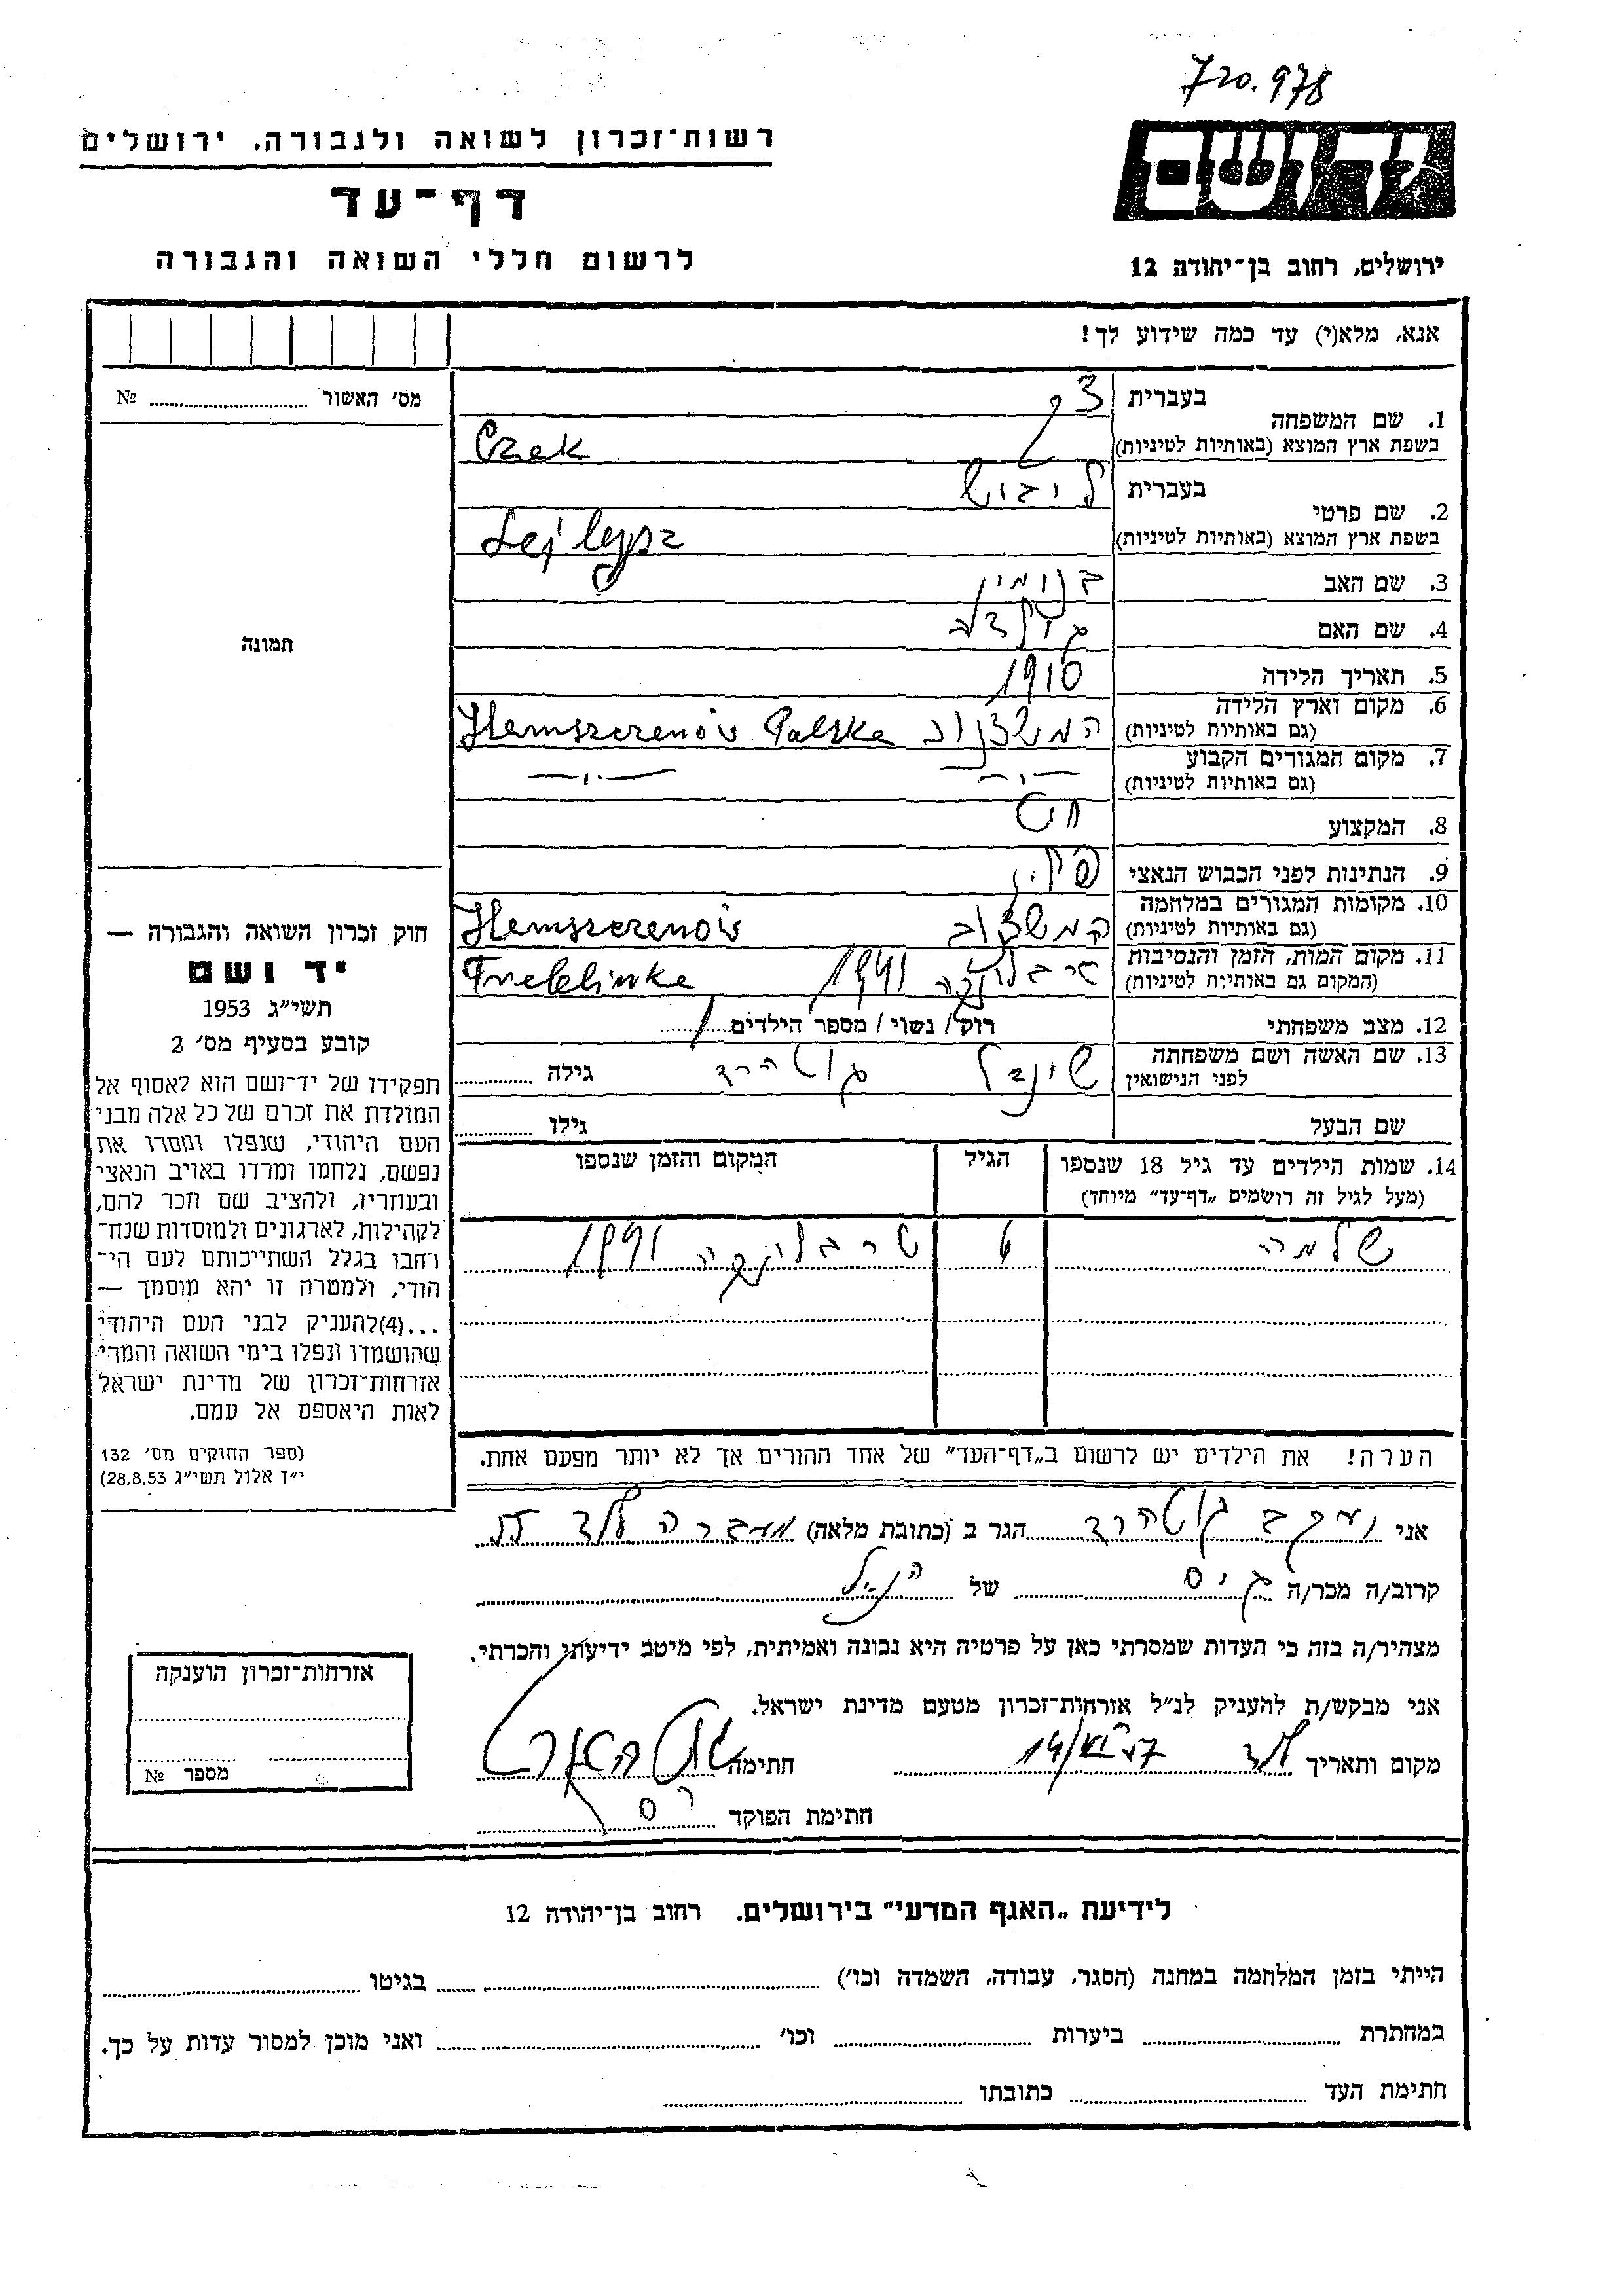 720.978
רשות־זכרון לשואה ולגבורה, ירושלים
דף־עד
לרשום חללי השואה והגבורה
ירושלים, רחוב בן־יהודה 12
אנא, מלא(י) עד כמה שידוע לך!
מס׳ האשור № ........
1. שם המשפחה
בעברית
בשפת ארץ המוצא (באותיות לטיניות) Czek
2. שם פרטי
בעברית ליבוש
בשפת ארץ המוצא (באותיות לטיניות) Lejlejpsz
3. שם האב בנומין
תמונה
4. שם האם
5. תאריך הלידה 1910
6. מקום וארץ הלידה
(גם באותיות לטיניות) המשצנוב Hemszczenów Polska
7. מקום המגורים הקבוע
(גם באותיות לטיניות) —"— —"—
8. המקצוע
9. הנתינות לפני הכבוש הנאצי
10. מקומות המגורים במלחמה
(גם באותיות לטיניות) Hemszczenów
11. מקום המות, הזמן והנסיבות
(המקום גם באותיות לטיניות) טרבלינקה 1941 Trebblinke
12. מצב משפחתי רווק/ נשוי/ מספר הילדים 1
13. שם האשה ושם משפחתה
לפני הנישואין שינדל גוטהרד גילה ........
שם הבעל גילו ........
14. שמות הילדים עד גיל 18 שנספו
(מעל לגיל זה רושמים „דף־עד” מיוחד)
הגיל
המקום והזמן שנספו
שלמה 6 טרבלינקה 1941
חוק זכרון השואה והגבורה —
יד ושם
תשי״ג 1953
קובע בסעיף מס׳ 2
תפקידו של יד־ושם הוא לאסוף אל
המולדת את זכרם של כל אלה מבני
העם היהודי, שנפלו ומסרו את
נפשם, נלחמו ומרדו באויב הנאצי
ובעוזריו, ולהציב שם וזכר להם,
לקהילות, לארגונים ולמוסדות שנח־
רחבו בגלל השתייכותם לעם הי־
הודי, ולמטרה זו יהא מוסמך —
...(4)להעניק לבני העם היהודי
שהושמדו ונפלו בימי השואה והמרי
אזרחות־זכרון של מדינת ישראל
לאות היאספם אל עמם.
(ספר החוקים מס׳ 132
י״ז אלול תשי״ג 28.8.53)
הערה! את הילדים יש לרשום ב„דף־העד” של אחד ההורים אך לא יותר מפעם אחת.
אני יעקב גוטהרד הגר ב (כתובת מלאה) מעברה לוד
קרוב/ה מכר/ה גיס של הנ״ל
מצהיר/ה בזה כי העדות שמסרתי כאן על פרטיה היא נכונה ואמיתית, לפי מיטב ידיעתי והכרתי.
אני מבקש/ת להעניק לנ״ל אזרחות־זכרון מטעם מדינת ישראל.
מקום ותאריך לוד חתימה
חתימת הפוקד
אזרחות־זכרון הוענקה
מספר №
לידיעת „האגף המדעי” בירושלים. רחוב בן־יהודה 12
הייתי בזמן המלחמה במחנה (הסגר, עבודה, השמדה וכו׳) ........ בגיטו ........
במחתרת ........ ביערות ........ וכו׳ ........ ואני מוכן למסור עדות על כך.
חתימת העד ........ כתובתו ........